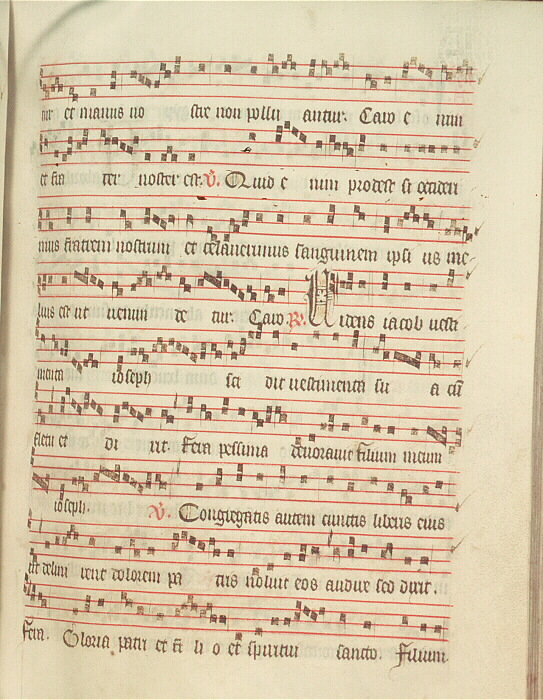 tur et manus no stre non pollu antur. Caro e nim
et fra ter noster est. V. Quid e nim prodest si occideri
mus fratrem nostrum et celauerimus sanguinem ipsi us me-
lius est ut uenun de tur. Caro. R. Uidens iacob uesti
menta ioseph sci dit uestimenta su a cū
fletu et di xit. Fera pessima deuorauit filium meum
ioseph. V. Congregatis autem cunctis liberis eius
ut leni rent dolorem pa tris noluit eos audire sed dixit.
Fera. Gloria patri et fi li o et spiritui sancto. Filium